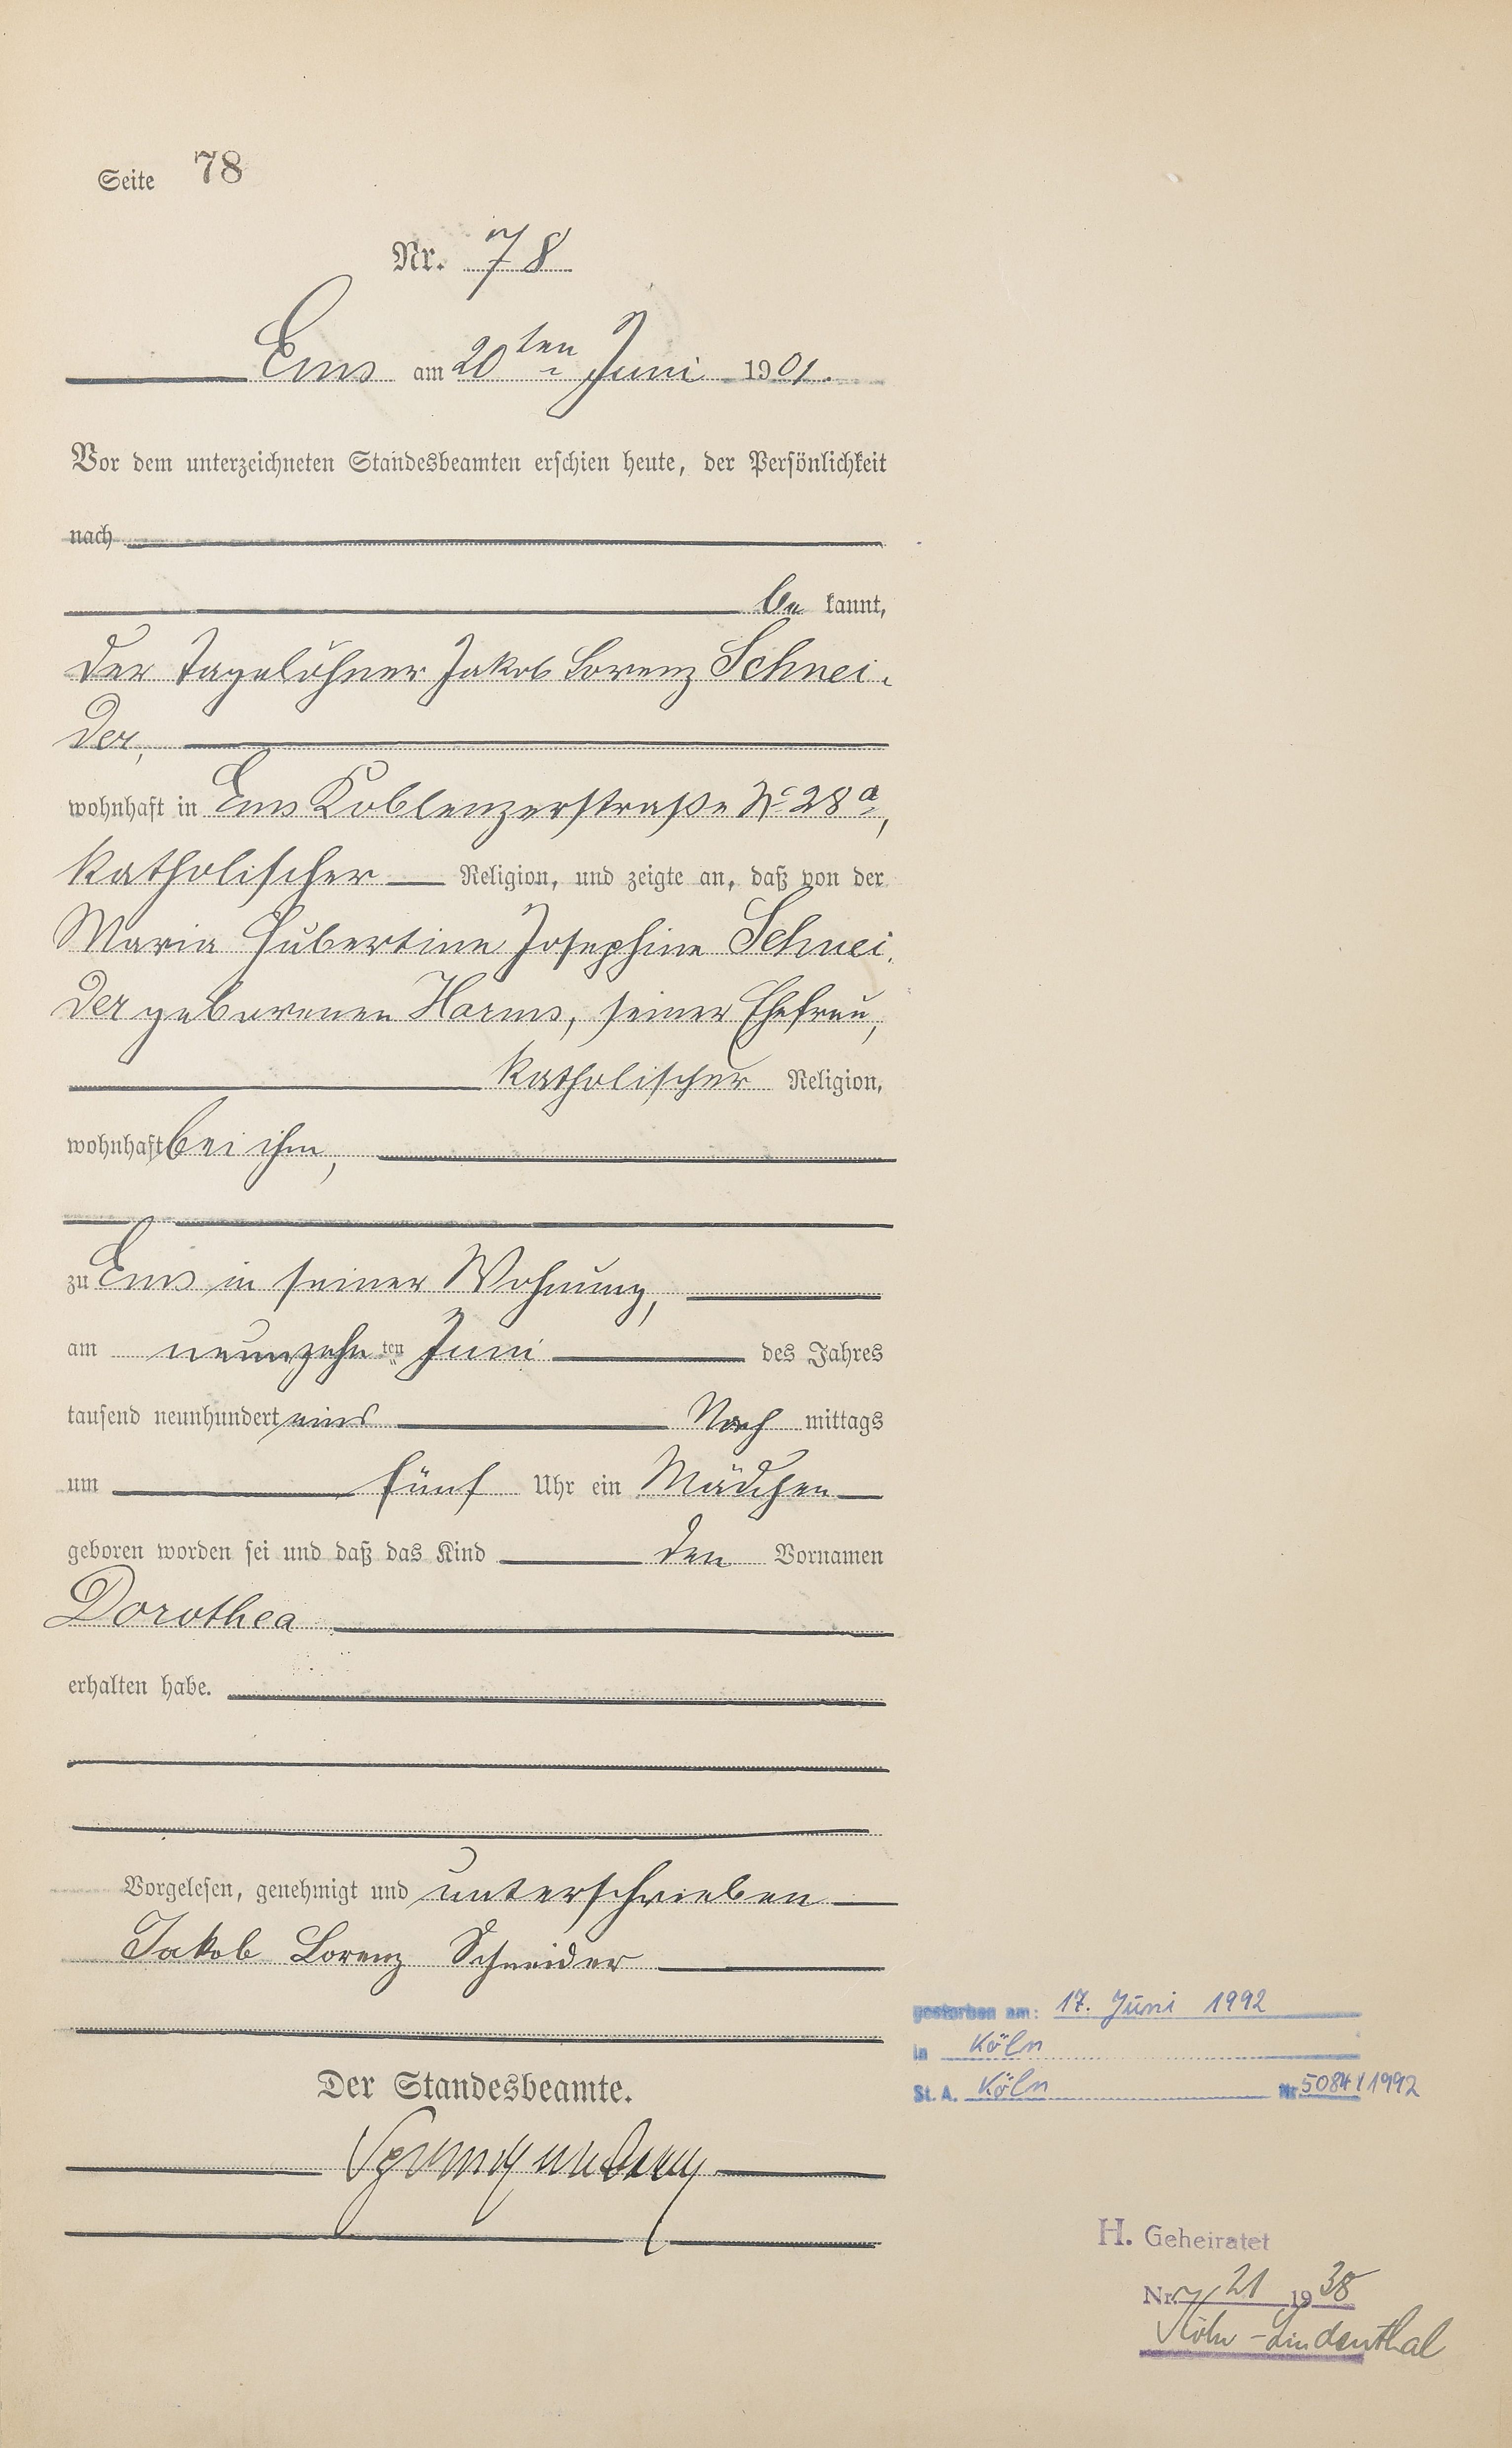 Seite 78
Nr. 78
Ems am 20ten Juni 1901.
Vor dem unterzeichneten Standesbeamten erschien heute, der Persönlichkeit
nach
be kannt,
der Tagelöhner Jakob Lorenz Schnei-
der,
wohnhaft in Ems Koblenzerstraße No 28a,
katholischer Religion, und zeigte an, daß von der
Maria Hubertine Josephine Schnei-
der geborenen Harms, seiner Ehefrau,
katholischer Religion,
wohnhaft bei ihm,
zu Ems in seiner Wohnung,
am neunzehnten Juni des Jahres
tausend neunhundert eins Nach mittags
um fünf Uhr ein Mädchen
geboren worden sei und daß das Kind den Vornamen
Dorothea
erhalten habe.
Vorgelesen, genehmigt und unterschrieben
Jakob Lorenz Schneider
gestorben am: 17. Juni 1992
in Köln
St. A. Köln Nr 5084/1992
Der Standesbeamte.
H. Geheiratet
Nr. 21 1938
Köln-Lindenthal